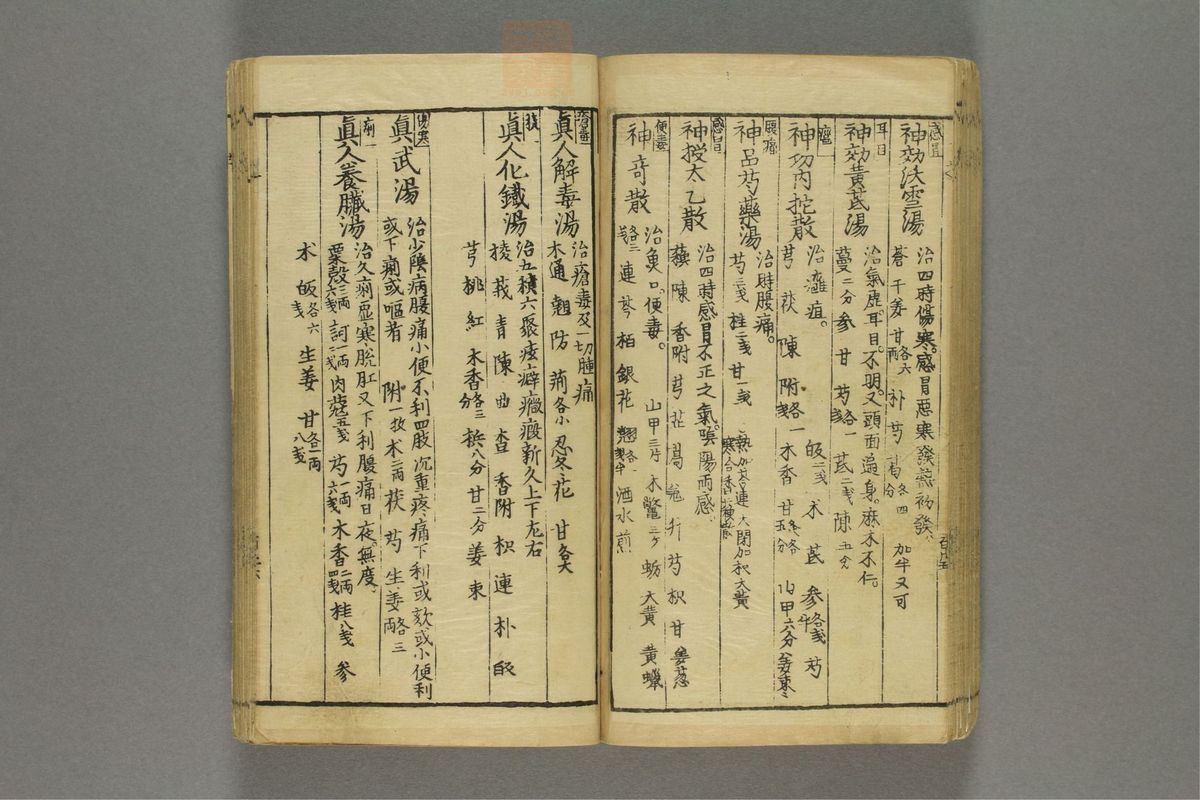 感冒
神効沃雪湯
治四時傷寒感冒惡寒發熱初發
蒼 干姜 甘各六 朴 芍 加半又可
耳目
神効黄芪湯
治氣虚耳目不明又頭面遍身麻木不仁
蔓二分 参 甘 芍各一 芪二戔 陳五分
癰
神功内托散
治癰疽
芎 茯 陳 附各一戔 木香 甘各五分 山甲六分 姜棗
皈二戔 朮 芪 参各戔半 芍
腹痛
神品芍藥湯
治時腹痛
芍三戔 桂二戔 甘一戔
熱加芩連 大閉加枳大黄
感冒
神授太乙散
治四時感冒不正之氣陰陽両感
蘓 陳 香附 芎 芷 葛 升 芍 枳 甘 姜葱
便毒
神奇散
治魚口便毒
山甲三片 木鱉三ケ 蛎 大黄 黄蠟
連 芩 柏 銀花 翹 酒水煎
瘡毒
眞人解毒湯
治瘡毒及一切腫痛
木通 翹 防 荊各小 忍冬花 甘各大
眞人化鐵湯
治五積六聚痃癖癥瘕新久上下左右
稜 莪 青 陳 曲 查 香附 枳 連 朴 皈
芎 桃 紅 木香各三分 梹八分 甘二分 姜 東
傷寒
眞武湯
治少陰病腹痛小便不利四肢沉重疼痛下利或欬或小便利
或下痢或嘔者
附一枚 朮二両 茯 芍 生姜各三両
痢一
眞人養臟湯
治久痢虚寒脱肛又下利腹痛日夜無度
粟殻三両六戔 訶一両二戔 肉蔲五戔 芍一両六戔 木香二両四戔 桂八戔 参
朮 皈各六戔 生姜 甘各一両八戔